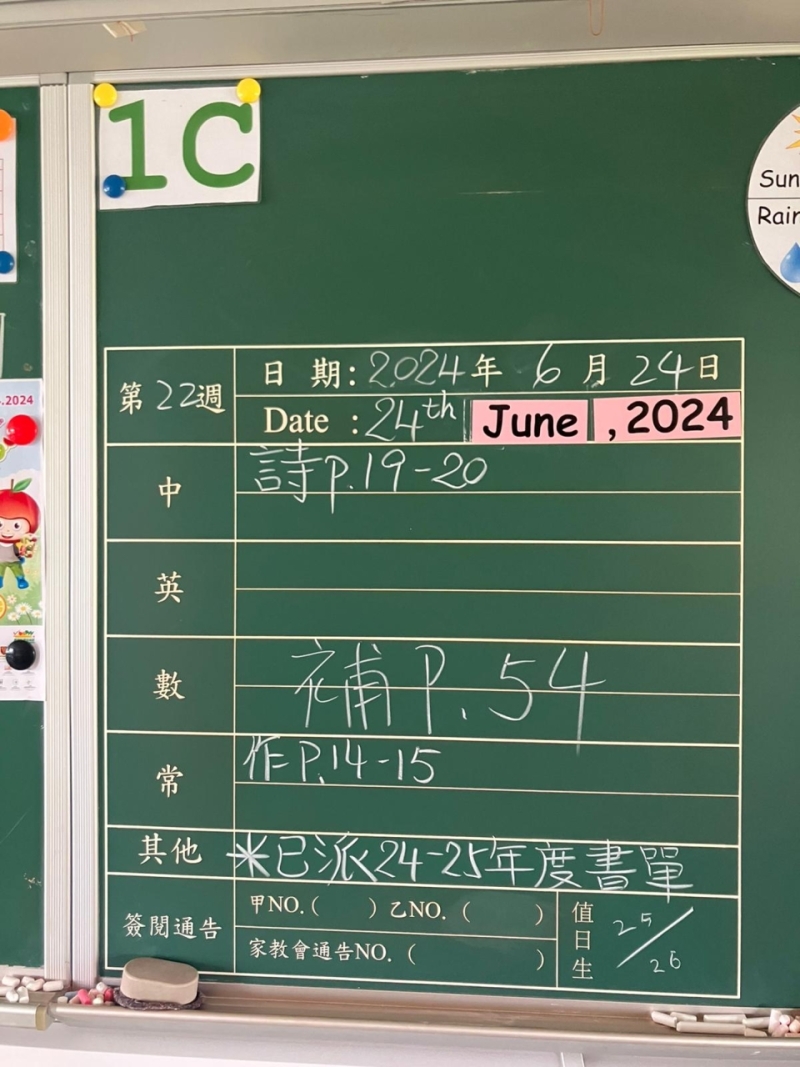 1C
Sun
Rain
.2024
第22週
日 期：2024年 6 月 24日
Date : 24th June , 2024
中 詩P.19-20
英
數 補P.54
常 作P.14-15
其他 米已派24-25年度書單
簽閱通告 甲NO.( ) 乙NO.( )
家教會通告NO.( )
值日生 25/26